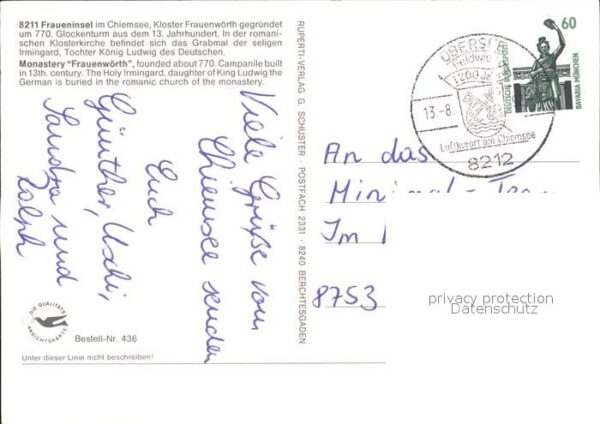 8211 Fraueninsel im Chiemsee, Kloster Frauenwörth gegründet
um 770. Glockenturm aus dem 13. Jahrhundert. In der romani-
schen Klosterkirche befindet sich das Grabmal der seligen
Irmingard, Tochter König Ludwig des Deutschen.
Monastery "Frauenwörth", founded about 770. Campanile built
in 13th. century. The Holy Irmingard, daughter of King Ludwig the
German is buried in the romanic church of the monastery.
Viele Grüße vom
Chiemsee senden
Euch
Günther, Uschi,
Sandra und
Ralph
DIE QUALITÄTS
ANSICHTSKARTE
Bestell-Nr. 436
Unter dieser Linie nicht beschreiben!
RUPERTI-VERLAG G. SCHUSTER · POSTFACH 2331 · 8240 BERCHTESGADEN
ÜBERSEE
1200 JA
13.-8.
Luftkurort am Chiemsee
8212
60
DEUTSCHE BUNDESPOST
BAVARIA MÜNCHEN
An das
Minimal-
Im
8753
privacy protection
Datenschutz